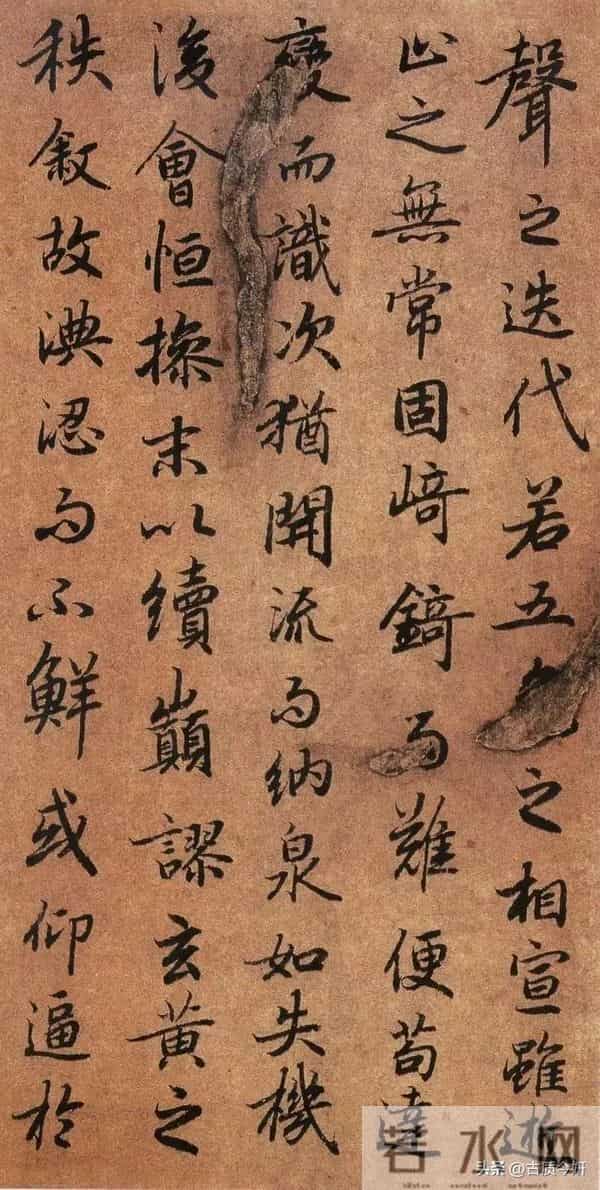 聲之迭代若五色之相宣雖逝
止之無常固崎錡而難便苟達
變而識次猶開流而納泉如失機
後會恒操末以續巔謬玄黃之
秩敘故淟涊而不鮮或仰逼於
水网
头条 @古质今妍